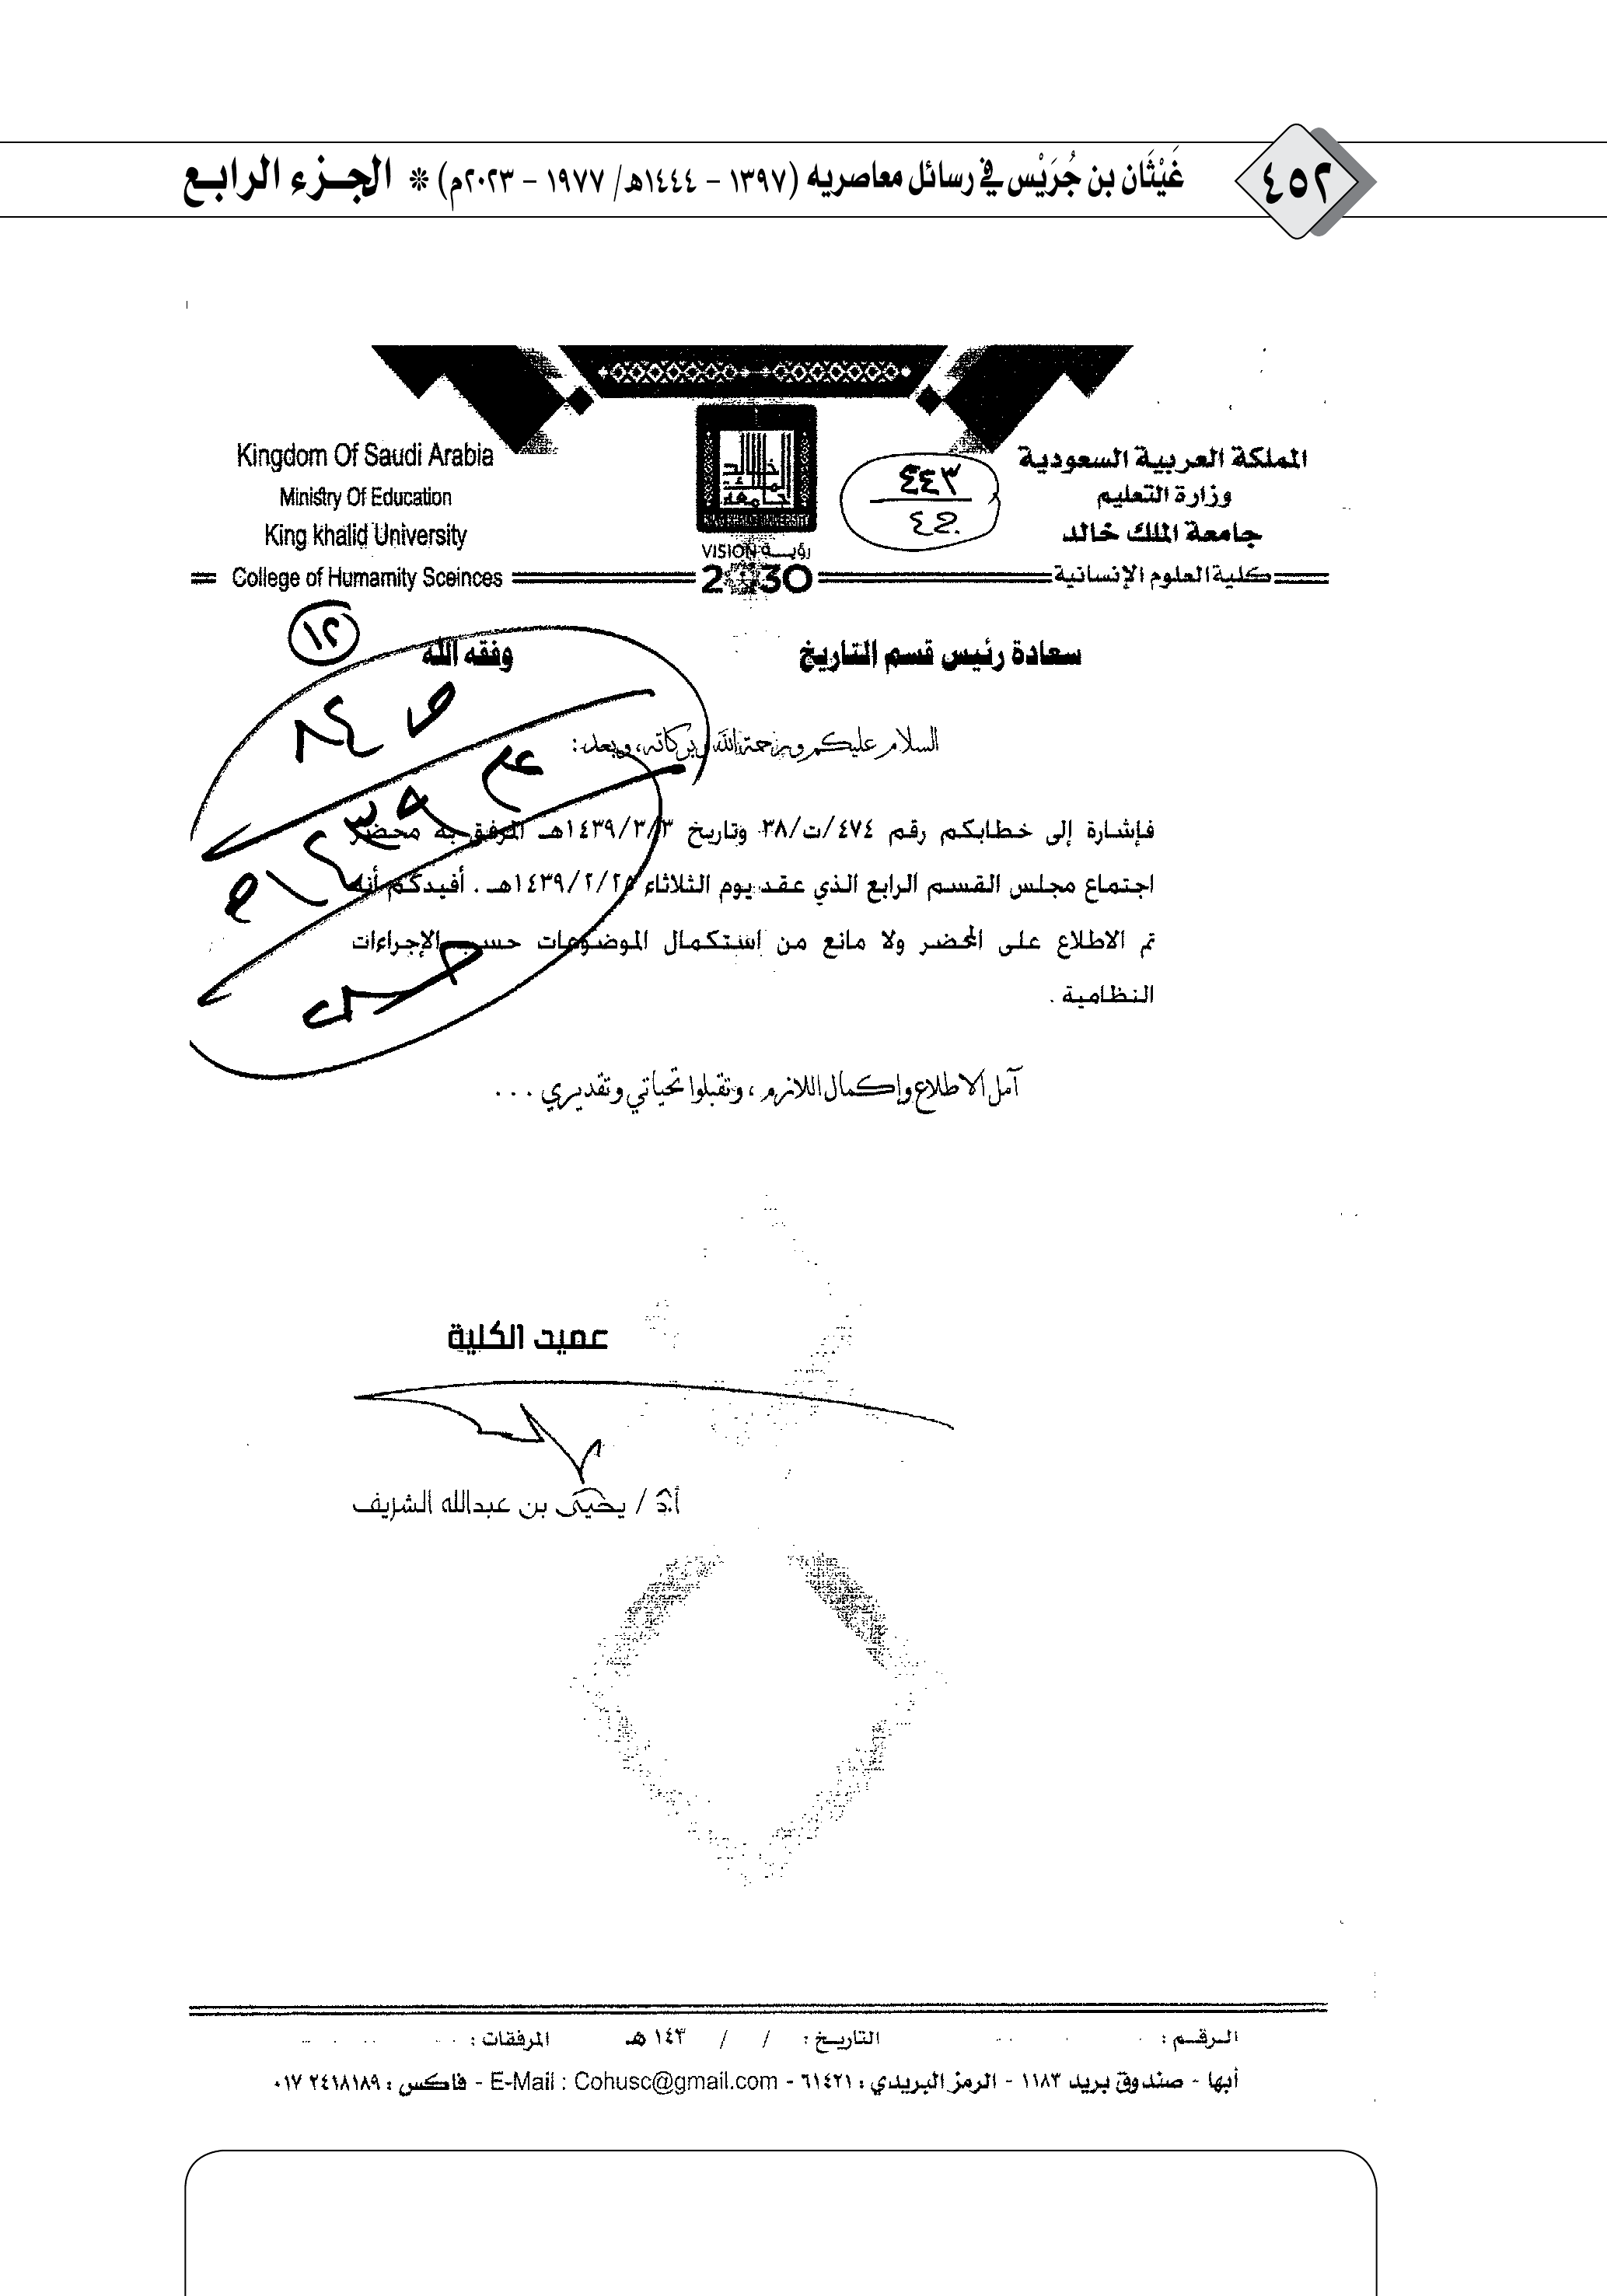 ٤٥٢
غَيْثَان بن جُرَيْس في رسائل معاصريه (١٣٩٧ - ١٤٤٤هـ/ ١٩٧٧ - ٢٠٢٣م) * الجزء الرابع
المملكة العربية السعودية
وزارة التعليم
جامعة الملك خالد
كلية العلوم الإنسانية
٤٤٣
جامعة الملك خالد
KING KHALID UNIVERSITY
VISION رؤيـــة
2030
Kingdom Of Saudi Arabia
Ministry Of Education
King khalid University
College of Humamity Sceinces
١٢
سعادة رئيس قسم التاريخ وفقه الله
السلام عليكم ورحمة الله وبركاته، وبعد :
فإشارة إلى خطابكم رقم ٤٧٤/ت/٣٨ وتاريخ ١٤٣٩/٣/٣هـ المرفق به محضر
اجتماع مجلس القسم الرابع الذي عقد يوم الثلاثاء ١٤٣٩/٢/٢٥هـ . أفيدكم أنه
تم الاطلاع على المحضر ولا مانع من استكمال الموضوعات حسب الإجراءات
النظامية .
آمل الاطلاع وإكمال اللازم ، وتقبلوا تحياتي وتقديري . . .
عميد الكلية
أ.د / يحيى بن عبدالله الشريف
الرقم : التاريخ : / / ١٤٣ هـ المرفقات :
أبها - صندوق بريد ١١٨٣ - الرمز البريدي : ٦١٤٢١ - E-Mail : Cohusc@gmail.com - فاكس : ٠١٧ ٢٤١٨١٨٩